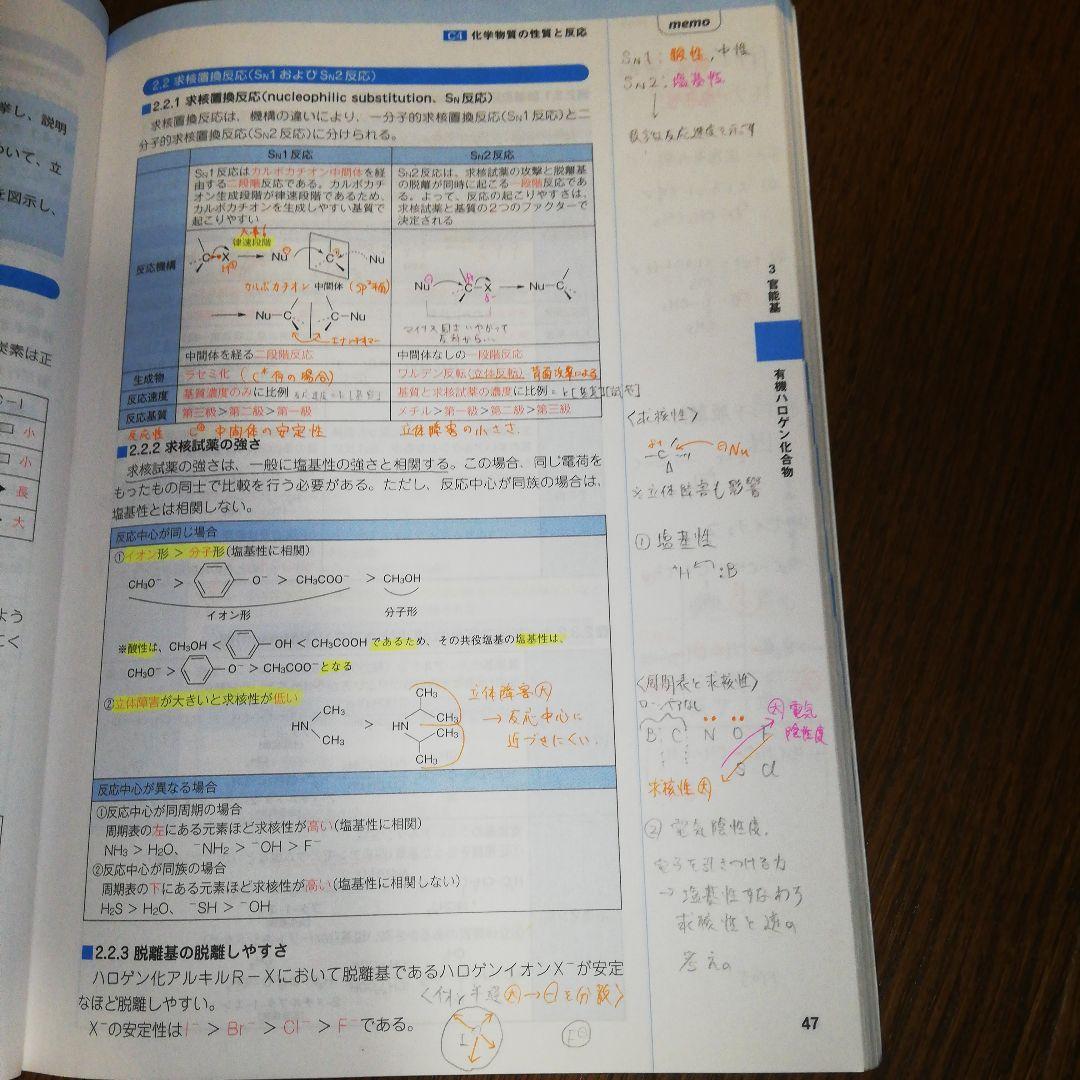 C4 化学物質の性質と反応
memo
2.2 求核置換反応(SN1およびSN2反応)
■2.2.1 求核置換反応(nucleophilic substitution、SN反応)
求核置換反応は、機構の違いにより、一分子的求核置換反応(SN1反応)と二
分子的求核置換反応(SN2反応)に分けられる。
SN1反応
SN2反応
SN1反応はカルボカチオン中間体を経
由する二段階反応である。カルボカチ
オン生成段階が律速段階であるため、
カルボカチオンを生成しやすい基質で
起こりやすい
SN2反応は、求核試薬の攻撃と脱離基
の脱離が同時に起こる一段階反応であ
る。よって、反応の起こりやすさは、
求核試薬と基質の2つのファクターで
決定される
反応機構
律速段階
C X → Nu C Nu
カルボカチオン 中間体 (sp²平面)
→ Nu-C C-Nu
エナンチオマー
Nu C-X → Nu-C
中間体を経る二段階反応
中間体なしの一段階反応
生成物
ラセミ化 (C*有の場合)
ワルデン反転(立体反転) 背面攻撃による
反応速度
基質濃度のみに比例
基質と求核試薬の濃度に比例
反応基質
第三級>第二級>第一級
メチル>第一級>第二級>第三級
反応性 C⊕ 中間体の安定性
立体障害の小ささ
■2.2.2 求核試薬の強さ
求核試薬の強さは、一般に塩基性の強さと相関する。この場合、同じ電荷を
もったもの同士で比較を行う必要がある。ただし、反応中心が同族の場合は、
塩基性とは相関しない。
反応中心が同じ場合
①イオン形 > 分子形(塩基性に相関)
CH3O⁻ > O⁻ > CH3COO⁻ > CH3OH
イオン形 分子形
※酸性は、CH3OH < OH < CH3COOH であるため、その共役塩基の塩基性は、
CH3O⁻ > O⁻ > CH3COO⁻ となる
②立体障害が大きいと求核性が低い
CH3
HN
CH3
>
CH3
CH3
HN
CH3
CH3
立体障害大
→ 反応中心に
近づきにくい
反応中心が異なる場合
①反応中心が同周期の場合
周期表の左にある元素ほど求核性が高い(塩基性に相関)
NH3 > H2O、 ⁻NH2 > ⁻OH > F⁻
②反応中心が同族の場合
周期表の下にある元素ほど求核性が高い(塩基性に相関しない)
H2S > H2O、 ⁻SH > ⁻OH
■2.2.3 脱離基の脱離しやすさ
ハロゲン化アルキルR-Xにおいて脱離基であるハロゲンイオンX⁻が安定
なほど脱離しやすい。
X⁻の安定性はI⁻ > Br⁻ > Cl⁻ > F⁻である。
I
F⊖
SN1: 酸性, 中性
SN2: 塩基性
〈求核性〉
δ+
C ⊖Nu
※立体障害も影響
① 塩基性
H :B
〈周期表と求核性〉
ローンペアなし
B C N O F
S Cl
大 電気
陰性度
求核性 大
② 電気陰性度
電子を引きつける力
→ 塩基性すなわち
求核性と逆の
考え
3
官能基
有機ハロゲン化合物
47
挙し、説明
ついて、立
を図示し、
炭素は正
C-I
小
小
長
大
よう
にく